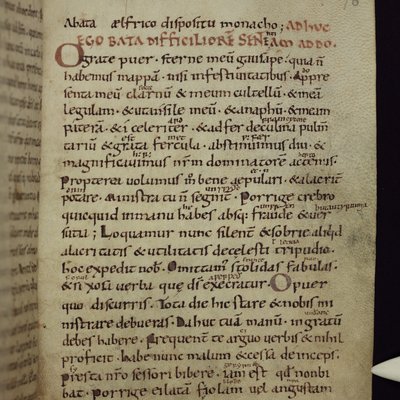 Abata ælfrico dispositu monacho; ADHUC
EGO BATA DIFFICILIORĒ SENTENTIAM ADDO.
Ograte puer · sterne meū gausape · quia ñ
habemus mappā · nisi in festiuitatibus · Appre
senta meū clarnū & meum cultellū · & meā
legulam · & utensile meū · & anaphū · & meam
paterā · & i celeriter · & adfer de culina pulm
tariū & grata fercula · abstinuimus diu · &
magnificauimus nr̄m dominatorem aeternis ·
Propterea uolumus m̄ bene aepulari · & alacrit
potare · Ministra tu ñ segnit · Porrige crebro
quicquid in manu habes absq; fraude & uer
sutia; Loquamur nunc silent̄ & sobrie aliqd
alacritatis & utilitatis de celesti tripudio ·
hoc expedit nob̄ · Omittam̄ stolidas fabulas ·
& si xosa uerba que d̄s execratur · O puer
quo discurris · Tota die hic stare & nobis mi
nistrare debueras · Da huc tuā manū · ingratū
debes habere · Frequent̄ te arguo uerbis & nihil
proficit · habe nunc malum & cessa deinceps ·
Presta nr̄o sessori bibere · iam est qđ non bi
bat · Porrige ei latā fiolam uel angustam